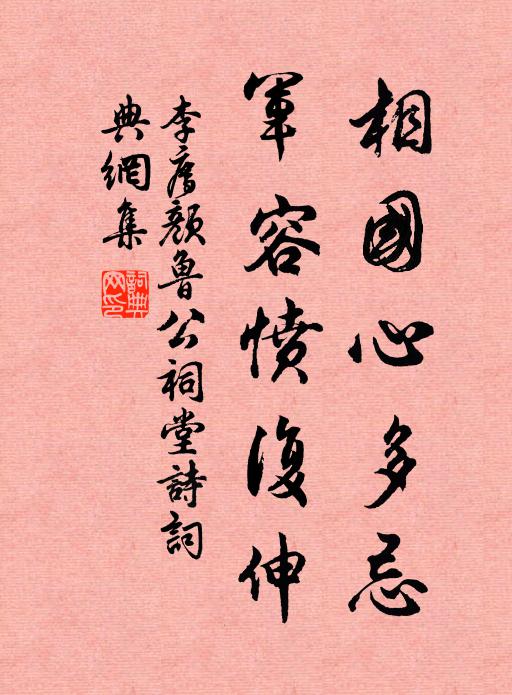 相國心多忌
軍容憤復伸
李廌顏魯公祠堂詩詞
典網集
詞典網印